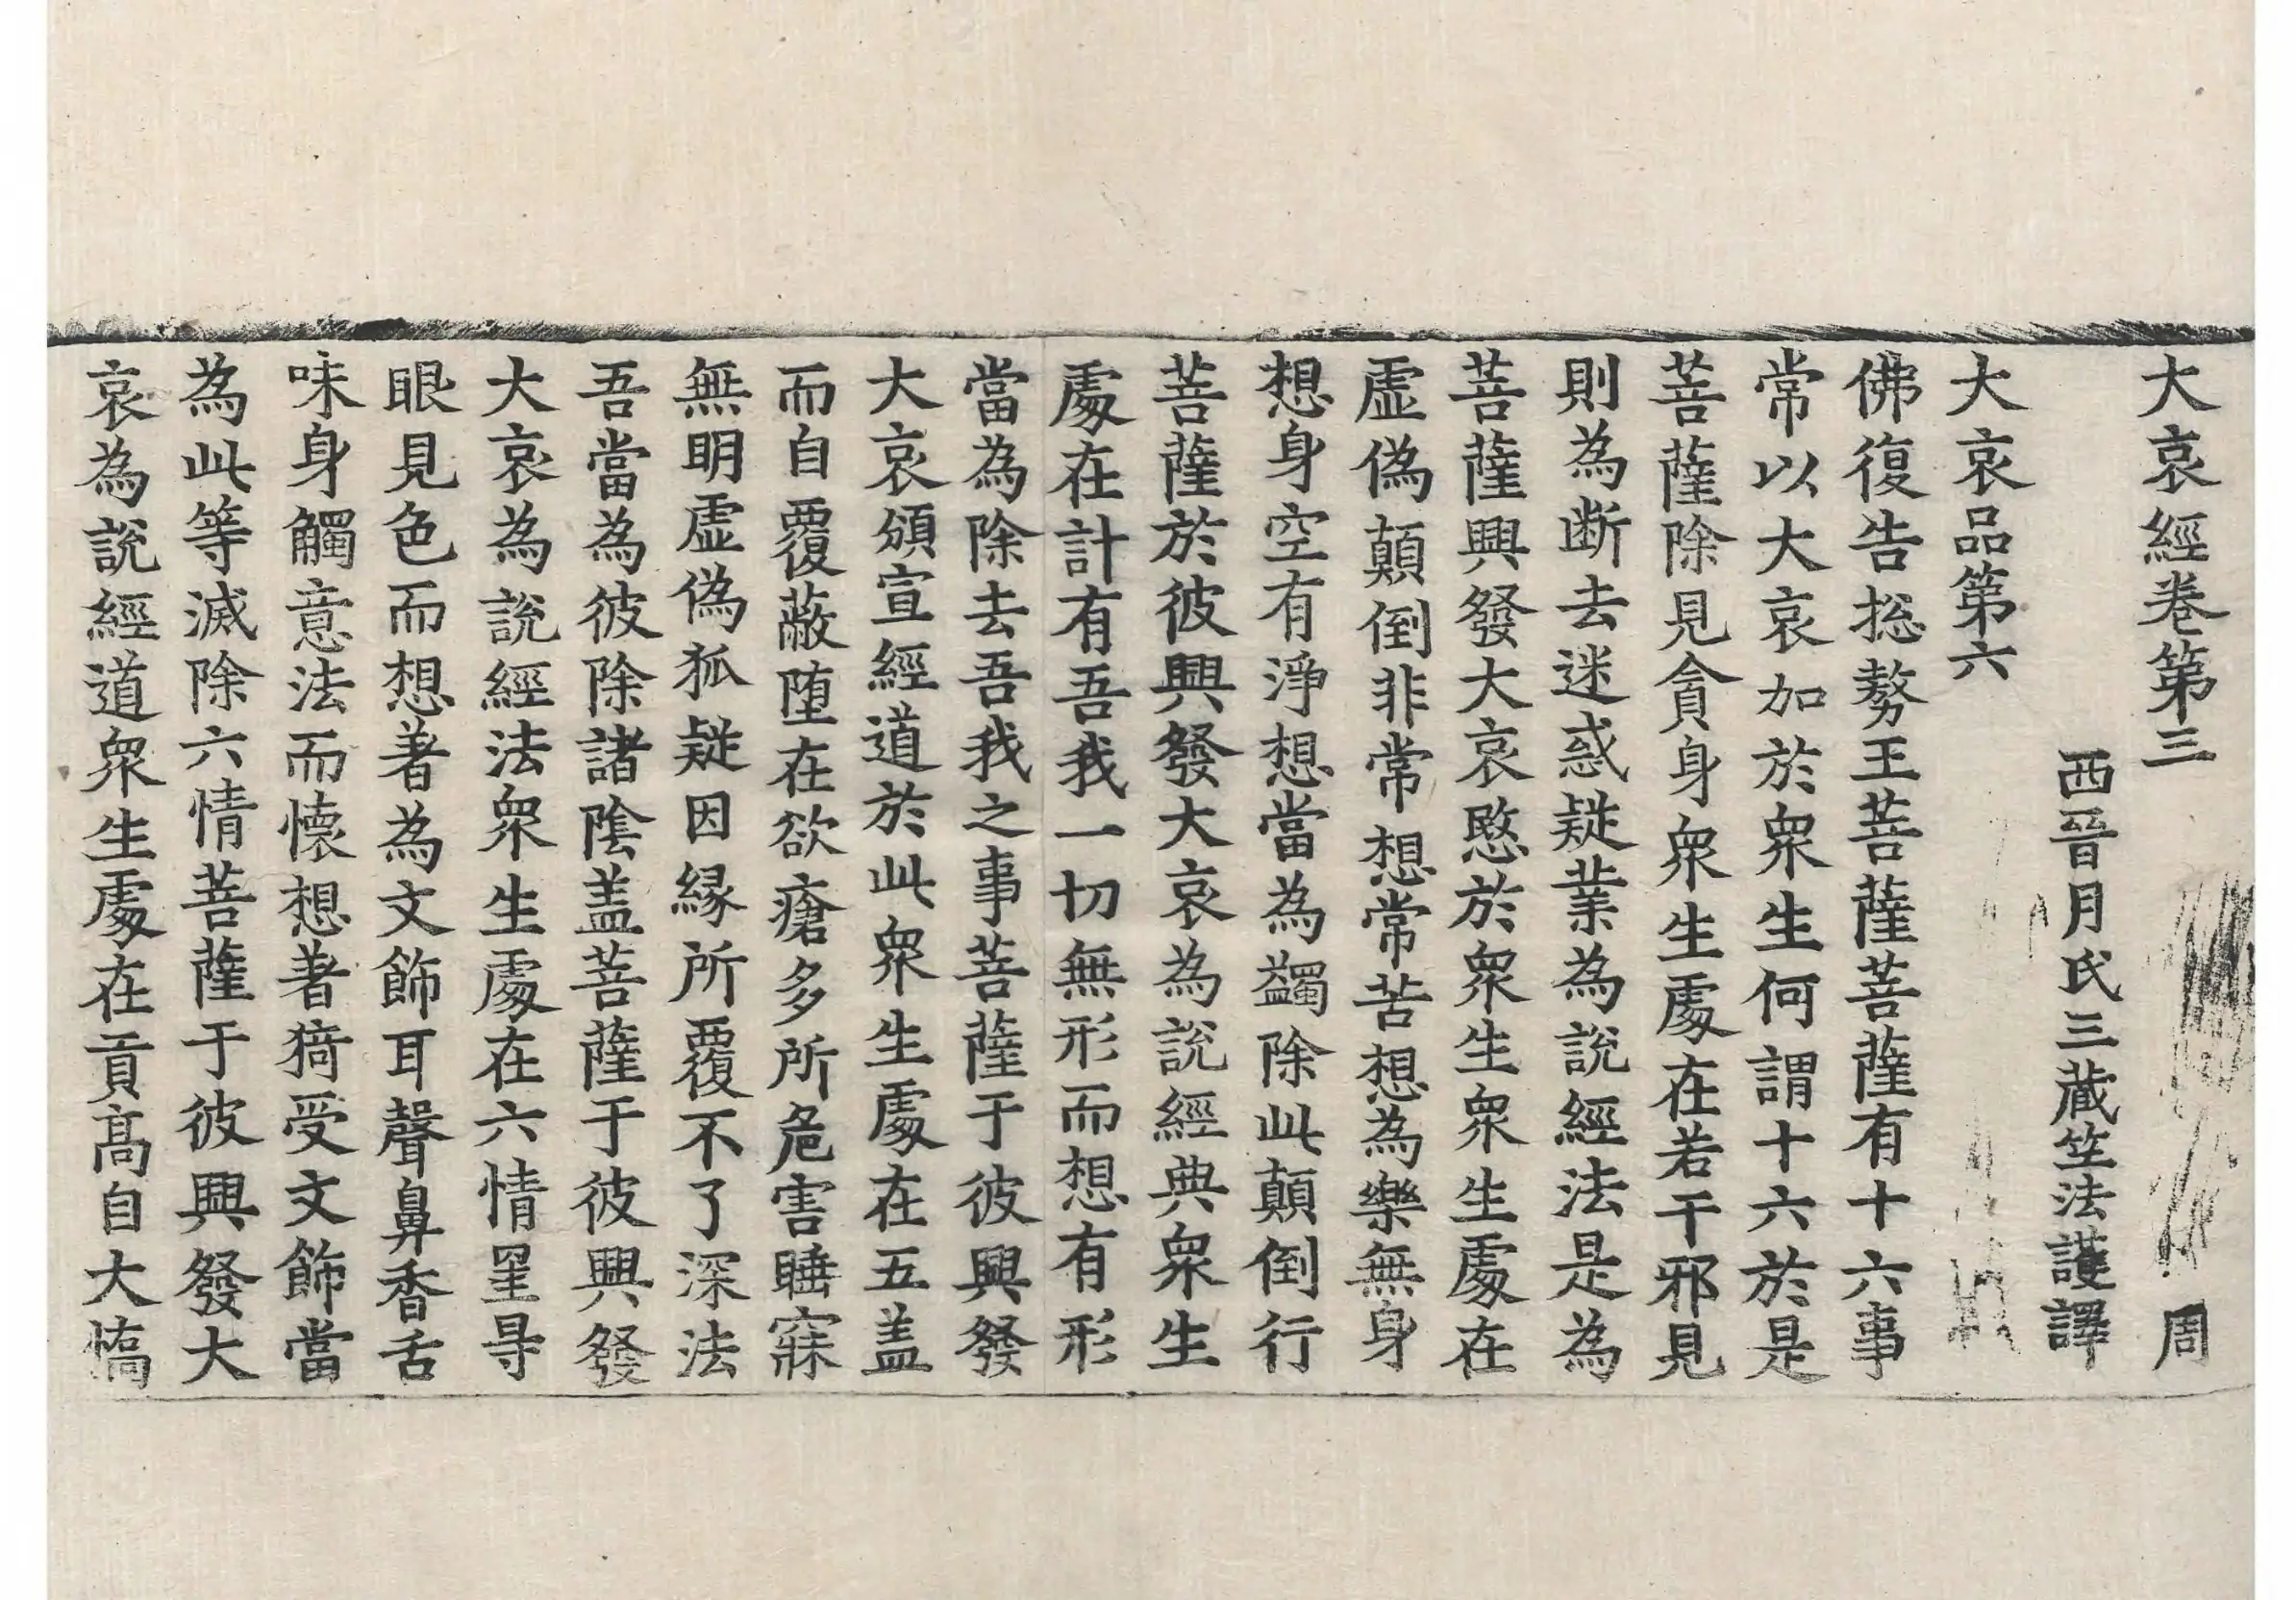 大哀經卷第三 周
西晉月氏三藏竺法護譯
大哀品第六
佛復告捴𠢕王菩薩菩薩有十六事
常以大哀加於衆生何謂十六於是
菩薩除見貪身衆生處在若干邪見
則為断去迷惑疑業為說經法是為
菩薩興發大哀愍於衆生衆生處在
虛偽顛倒非常想常苦想為樂無身
想身空有淨想當為蠲除此顛倒行
菩薩於彼興發大哀為說經典衆生
處在計有吾我一切無形而想有形
當為除去吾我之事菩薩于彼興發
大哀頒宣經道於此衆生處在五盖
而自覆蔽堕在欲瘡多所危害睡寐
無明虛偽狐疑因緣所覆不了深法
吾當為彼除諸陰盖菩薩于彼興發
大哀為說經法衆生處在六情罣㝵
眼見色而想著為文飾耳聲鼻香舌
味身觸意法而懷想著猗受文飾當
為此等滅除六情菩薩于彼興發大
哀為說經道衆生處在貢髙自大憍